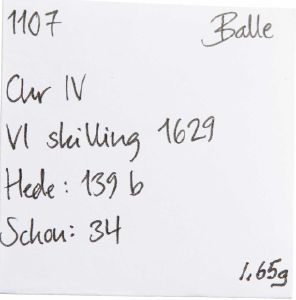 1107 Balle
Chr IV
VI skilling 1629
Hede: 139 b
Schou: 34
1,65g